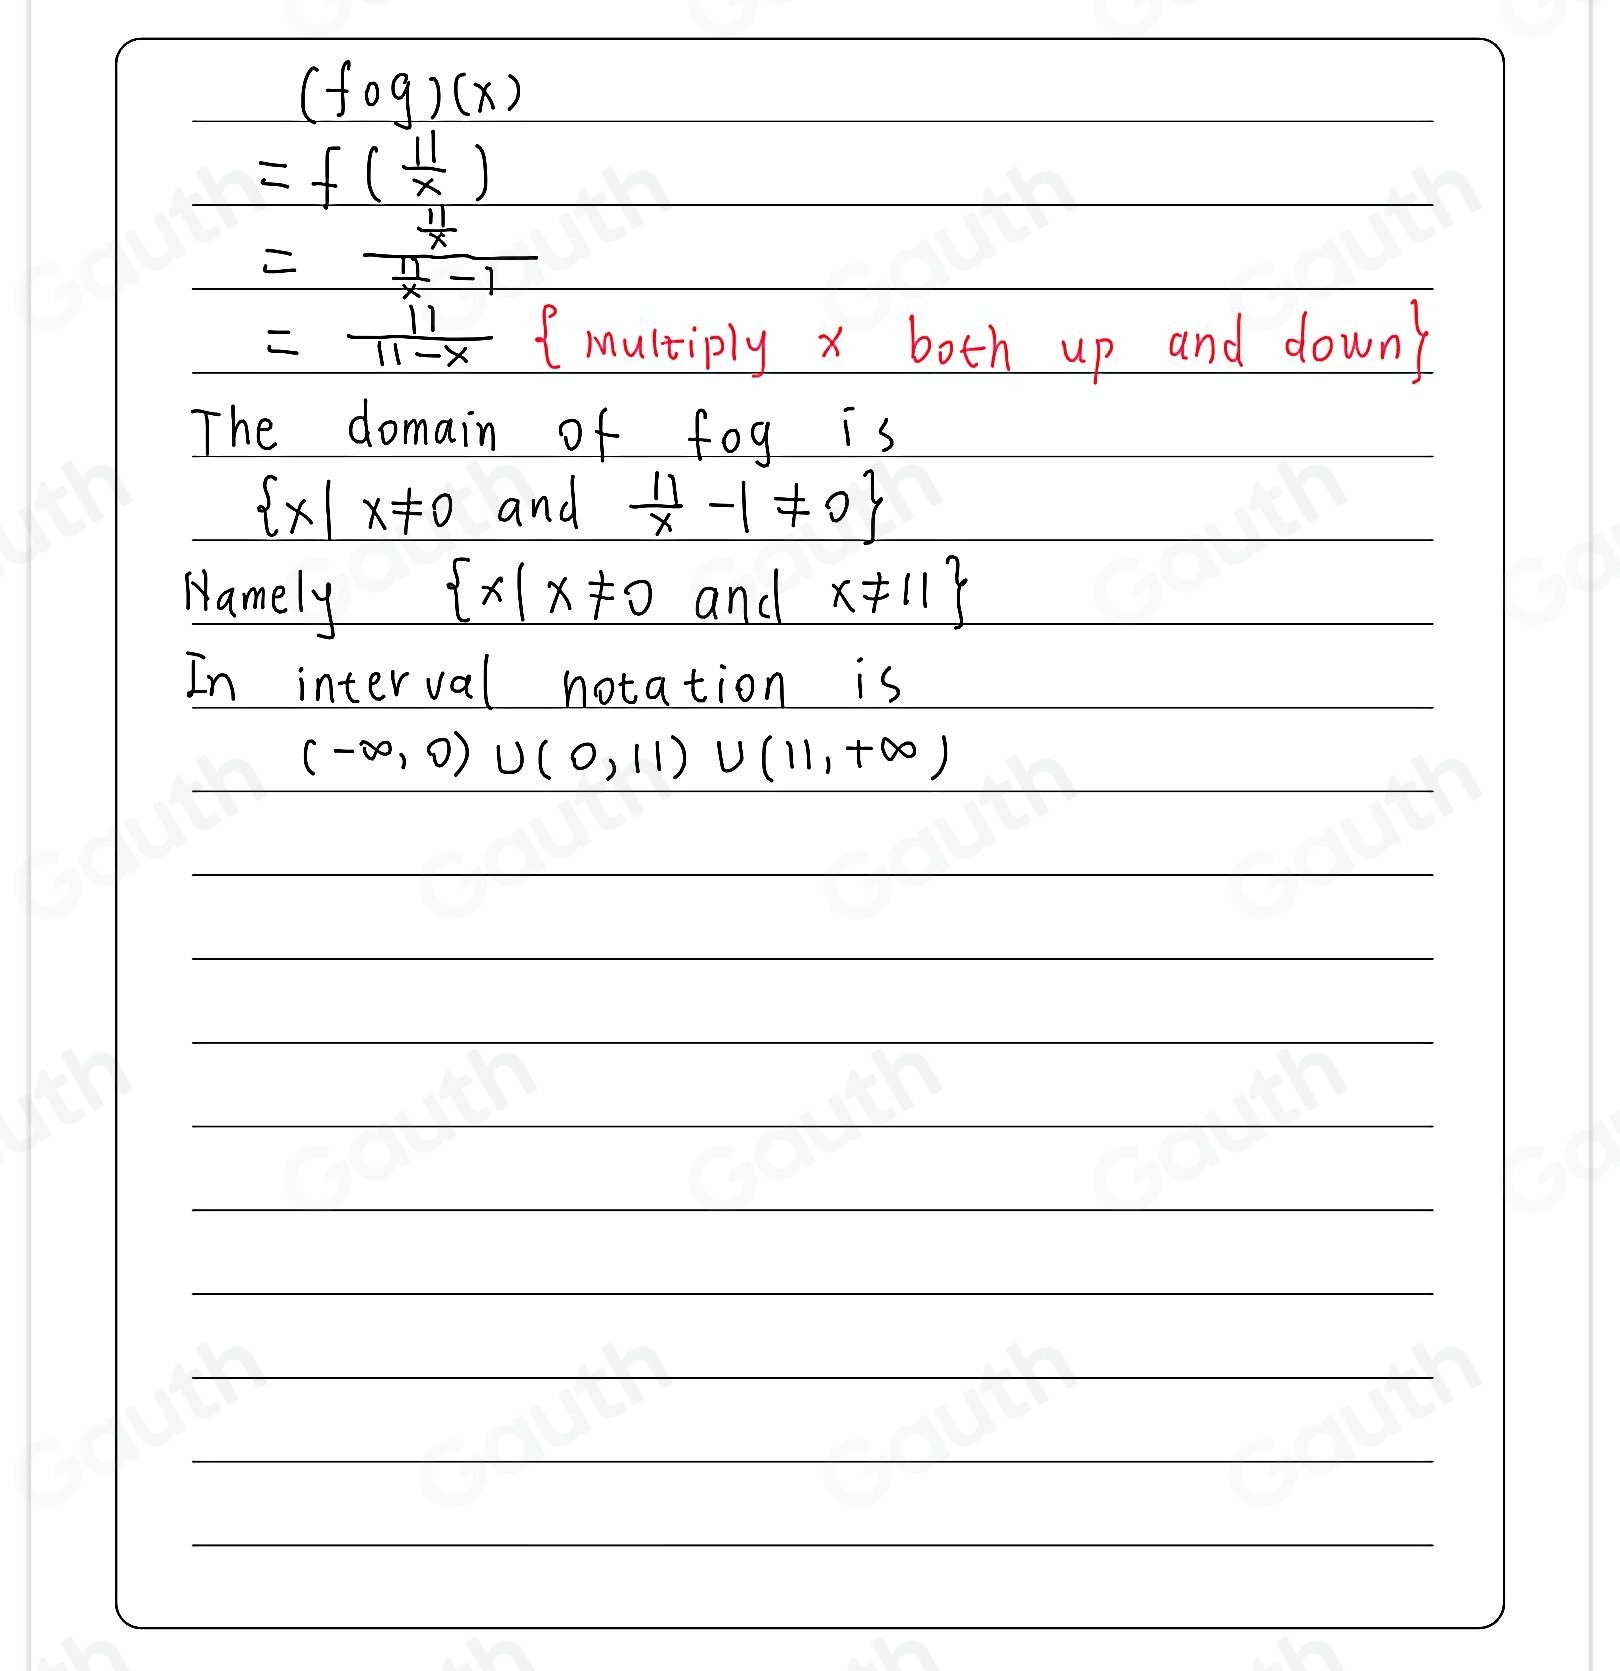 (fog)(x)
= f(11/x)
= (11/x)/(11/x - 1)
= 11/(11-x) {multiply x both up and down}
The domain of fog is
{x| x≠0 and 11/x -1≠0}
Namely {x| x≠0 and x≠11}
In interval notation is
(-∞,0)∪(0,11)∪(11,+∞)
Gauth